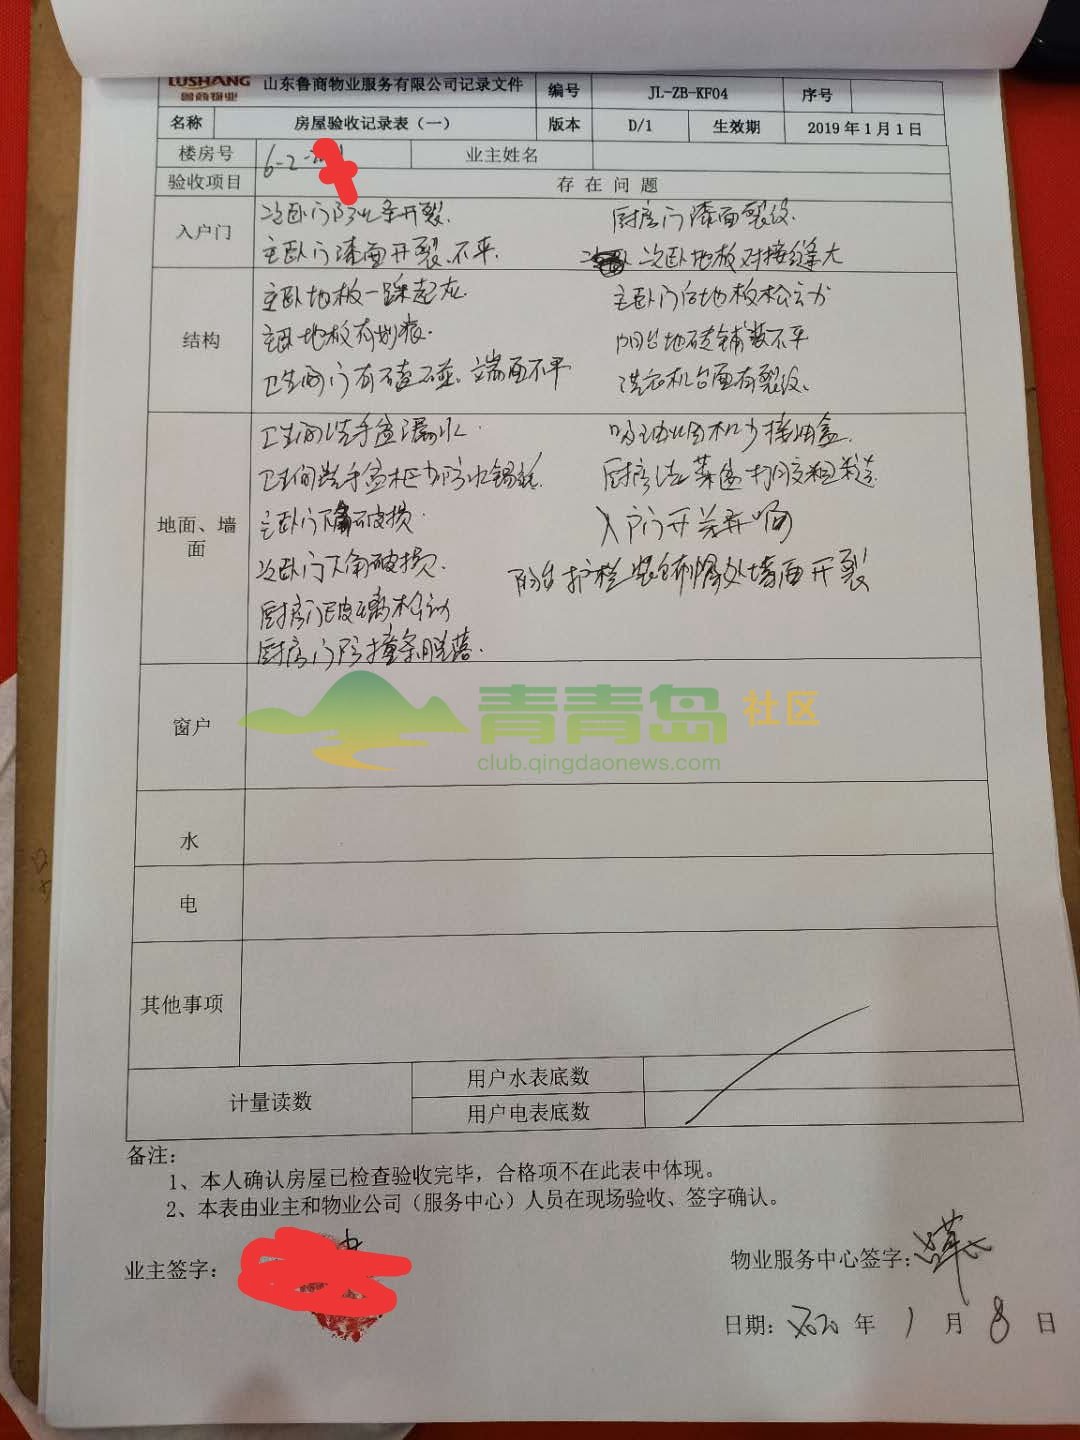 LUSHANG 山东鲁商物业服务有限公司记录文件 编号 JL-ZB-KF04 序号
鲁商物业
名称 房屋验收记录表（一） 版本 D/1 生效期 2019年1月1日
楼房号 6-2- 业主姓名
验收项目 存在问题
入户门 次卧门防火条开裂. 厨房门漆面裂纹.
主卧门漆面开裂.不平. 次卧地板对接缝大
结构 主卧地板一踩起灰 主卧门口地板松动
主卧地板有划痕. 阳台地砖铺装不平
卫生间门有磕碰、端面不平 洗衣机台面有裂纹、
地面、墙面 卫生间洗手盆漏水. 吸油烟机少接油盒.
卫生间洗手盆柜少防水锡纸. 厨房洗菜盆打胶粗糙
主卧门下角破损. 入户门开关异响
次卧门下角破损. 阳台护栏安装处墙面开裂
厨房门玻璃松动
厨房门防撞条脱落.
青青岛 社区
club.qingdaonews.com
窗户
水
电
其他事项
计量读数 用户水表底数
用户电表底数
备注：
1、本人确认房屋已检查验收完毕，合格项不在此表中体现。
2、本表由业主和物业公司（服务中心）人员在现场验收、签字确认。
业主签字： 物业服务中心签字：
日期：2020年1月8日